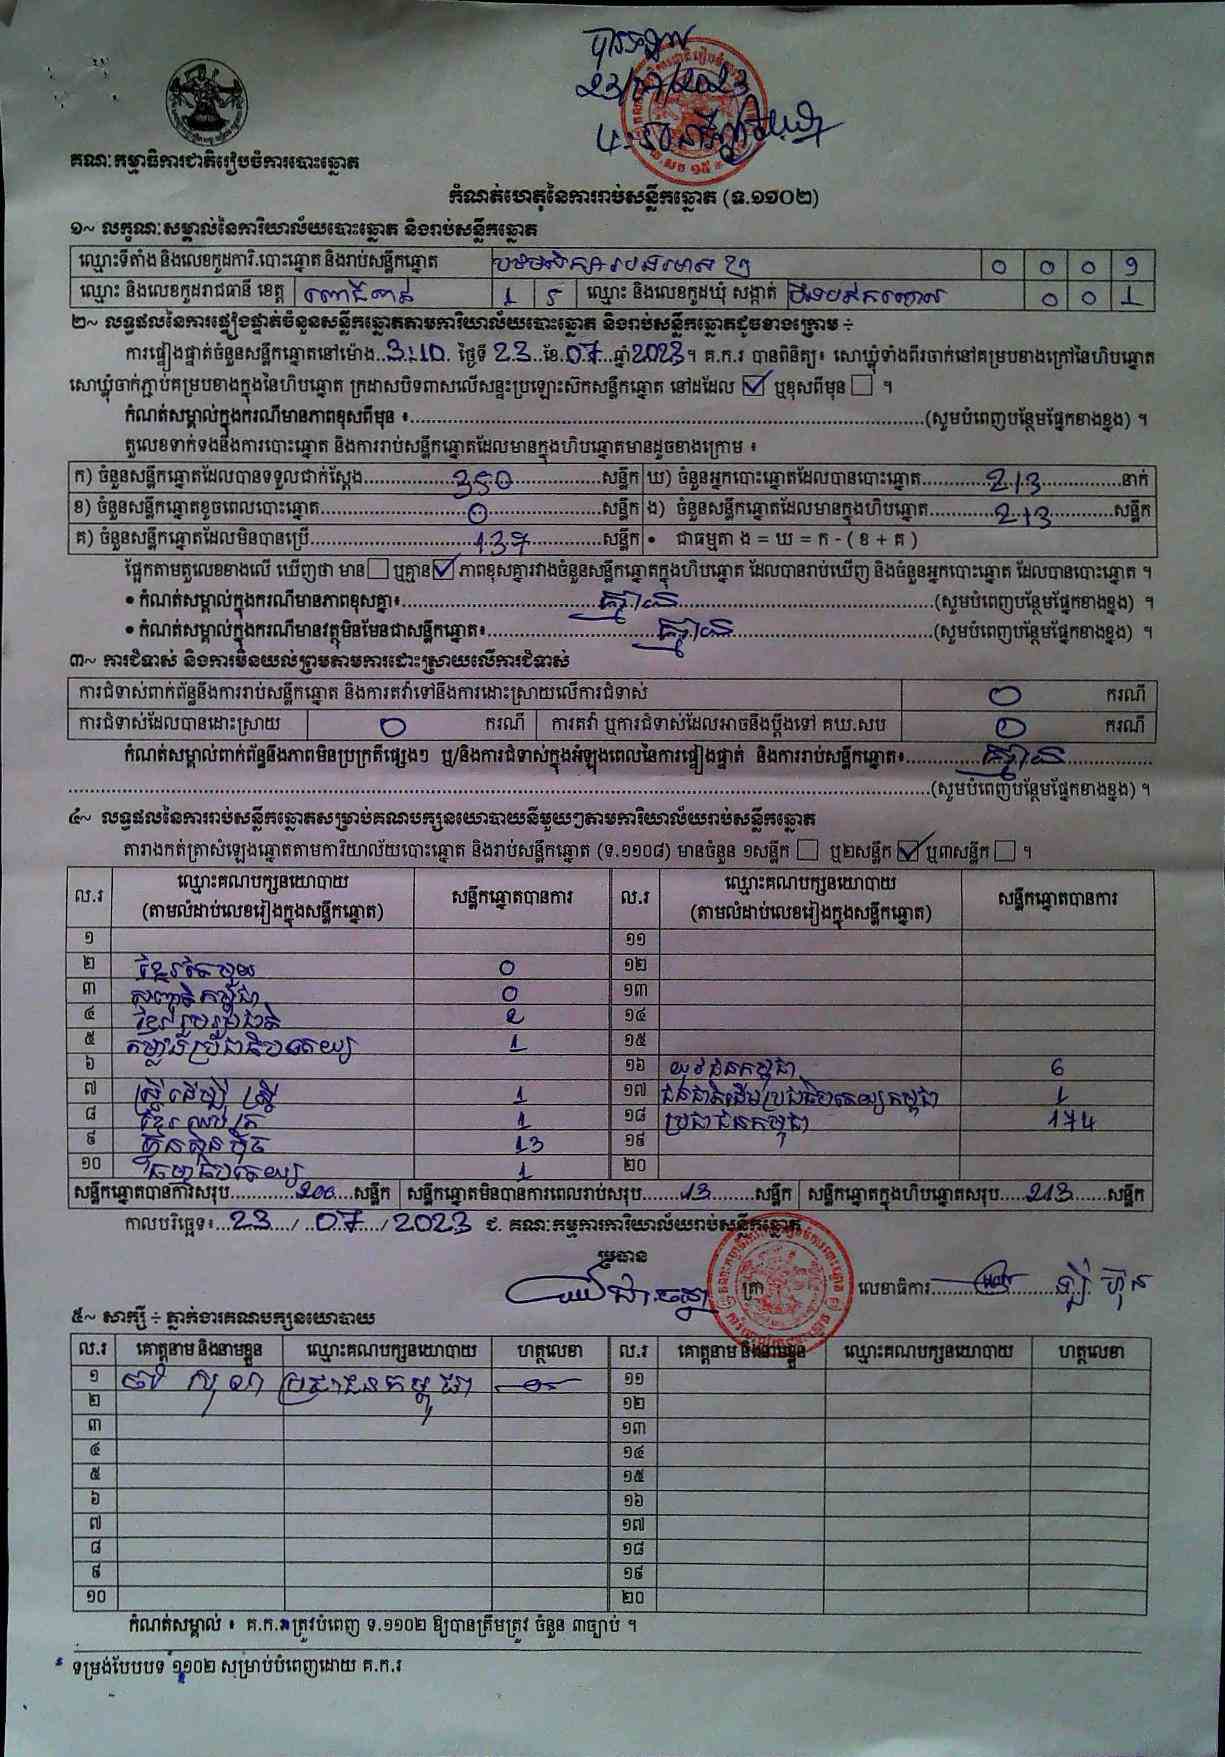 បានឃើញ
23/07/2023
គណៈកម្មាធិការជាតិរៀបចំការបោះឆ្នោត
កំណត់ហេតុនៃការរាប់សន្លឹកឆ្នោត (ទ.១១០២)
១~ លក្ខណៈសម្គាល់នៃការិយាល័យបោះឆ្នោត និងរាប់សន្លឹកឆ្នោត
ឈ្មោះទីតាំង និងលេខកូដការិ.បោះឆ្នោត និងរាប់សន្លឹកឆ្នោត ០ ០ ០ ១
ឈ្មោះ និងលេខកូដរាជធានី ខេត្ត ពោធិ៍សាត់ 1 5 ឈ្មោះ និងលេខកូដឃុំ សង្កាត់ 0 0 1
២~ លទ្ធផលនៃការផ្ទៀងផ្ទាត់ចំនួនសន្លឹកឆ្នោតតាមការិយាល័យបោះឆ្នោត និងរាប់សន្លឹកឆ្នោតដូចខាងក្រោម ÷
ការផ្ទៀងផ្ទាត់ចំនួនសន្លឹកឆ្នោតនៅម៉ោង..3:10. ថ្ងៃទី 23..ខែ.07..ឆ្នាំ2023។ គ.ក.រ បានពិនិត្យ៖ សោឃ្លុំទាំងពីរចាក់នៅគម្របខាងក្រៅនៃហិបឆ្នោត
សោឃ្លុំចាក់ភ្ជាប់គម្របខាងក្នុងនៃហិបឆ្នោត ក្រដាសបិទពាសលើសន្ទះប្រឡោះស៊កសន្លឹកឆ្នោត នៅដដែល ☑ ឬខុសពីមុន ☐ ។
កំណត់សម្គាល់ក្នុងករណីមានភាពខុសពីមុន ៖..........(សូមបំពេញបន្ថែមផ្នែកខាងខ្នង) ។
តួលេខទាក់ទងនឹងការបោះឆ្នោត និងការរាប់សន្លឹកឆ្នោតដែលមានក្នុងហិបឆ្នោតមានដូចខាងក្រោម ៖
ក) ចំនួនសន្លឹកឆ្នោតដែលបានទទួលជាក់ស្តែង..........350..........សន្លឹក ឃ) ចំនួនអ្នកបោះឆ្នោតដែលបានបោះឆ្នោត..........213..........នាក់
ខ) ចំនួនសន្លឹកឆ្នោតខូចពេលបោះឆ្នោត..........0..........សន្លឹក ង) ចំនួនសន្លឹកឆ្នោតដែលមានក្នុងហិបឆ្នោត..........213..........សន្លឹក
គ) ចំនួនសន្លឹកឆ្នោតដែលមិនបានប្រើ..........137..........សន្លឹក • ជាធម្មតា ង = ឃ = ក - ( ខ + គ )
ផ្អែកតាមតួលេខខាងលើ ឃើញថា មាន☐ ឬគ្មាន☑ ភាពខុសគ្នារវាងចំនួនសន្លឹកឆ្នោតក្នុងហិបឆ្នោត ដែលបានរាប់ឃើញ និងចំនួនអ្នកបោះឆ្នោត ដែលបានបោះឆ្នោត ។
• កំណត់សម្គាល់ក្នុងករណីមានភាពខុសគ្នា៖..........គ្មាន..........(សូមបំពេញបន្ថែមផ្នែកខាងខ្នង) ។
• កំណត់សម្គាល់ក្នុងករណីមានវត្ថុមិនមែនជាសន្លឹកឆ្នោត៖..........គ្មាន..........(សូមបំពេញបន្ថែមផ្នែកខាងខ្នង) ។
៣~ ការជំទាស់ និងការមិនយល់ព្រមតាមការដោះស្រាយលើការជំទាស់
ការជំទាស់ពាក់ព័ន្ធនឹងការរាប់សន្លឹកឆ្នោត និងការតវ៉ាទៅនឹងការដោះស្រាយលើការជំទាស់ 0 ករណី
ការជំទាស់ដែលបានដោះស្រាយ 0 ករណី ការតវ៉ា ឬការជំទាស់ដែលអាចនឹងប្តឹងទៅ គឃ.សប 0 ករណី
កំណត់សម្គាល់ពាក់ព័ន្ធនឹងភាពមិនប្រក្រតីផ្សេងៗ ឬ/និងការជំទាស់ក្នុងអំឡុងពេលនៃការផ្ទៀងផ្ទាត់ និងការរាប់សន្លឹកឆ្នោត៖..........គ្មាន..........
..........(សូមបំពេញបន្ថែមផ្នែកខាងខ្នង) ។
៤~ លទ្ធផលនៃការរាប់សន្លឹកឆ្នោតសម្រាប់គណបក្សនយោបាយនីមួយៗតាមការិយាល័យរាប់សន្លឹកឆ្នោត
តារាងកត់ត្រាសំឡេងឆ្នោតតាមការិយាល័យបោះឆ្នោត និងរាប់សន្លឹកឆ្នោត (ទ.១១០៨) មានចំនួន ១សន្លឹក ☐ ឬ២សន្លឹក ☑ ឬ៣សន្លឹក ☐ ។
ល.រ ឈ្មោះគណបក្សនយោបាយ (តាមលំដាប់លេខរៀងក្នុងសន្លឹកឆ្នោត) សន្លឹកឆ្នោតបានការ ល.រ ឈ្មោះគណបក្សនយោបាយ (តាមលំដាប់លេខរៀងក្នុងសន្លឹកឆ្នោត) សន្លឹកឆ្នោតបានការ
១ ១១
២ ខ្មែរតែមួយ 0 ១២
៣ សញ្ជាតិកម្ពុជា 0 ១៣
៤ ខ្មែររួបរួមជាតិ 2 ១៤
៥ កម្លាំងប្រជាធិបតេយ្យ 1 ១៥
៦ ១៦ យុវជនកម្ពុជា 6
៧ ស្រ្តីដើម្បីស្រ្តី 1 ១៧ ជនជាតិដើមប្រជាធិបតេយ្យកម្ពុជា 1
៨ 1 ១៨ ប្រជាជនកម្ពុជា 174
៩ ហ៊្វុនស៊ិនប៉ិច 13 ១៩
១០ ធម្មាធិបតេយ្យ 1 ២០
សន្លឹកឆ្នោតបានការសរុប..........200....សន្លឹក សន្លឹកឆ្នោតមិនបានការពេលរាប់សរុប.......13.......សន្លឹក សន្លឹកឆ្នោតក្នុងហិបឆ្នោតសរុប.....213......សន្លឹក
កាលបរិច្ឆេទ៖...23..../..07..../ 2023 ជ. គណៈកម្មការការិយាល័យរាប់សន្លឹកឆ្នោត
ប្រធាន
ត្រា លេខាធិការ.......... ឡី ហ៊ុន
៥~ សាក្សី ÷ ភ្នាក់ងារគណបក្សនយោបាយ
ល.រ គោត្តនាម និងនាមខ្លួន ឈ្មោះគណបក្សនយោបាយ ហត្ថលេខា ល.រ គោត្តនាម និងនាមខ្លួន ឈ្មោះគណបក្សនយោបាយ ហត្ថលេខា
១ ប្រជាជនកម្ពុជា ១១
២ ១២
៣ ១៣
៤ ១៤
៥ ១៥
៦ ១៦
៧ ១៧
៨ ១៨
៩ ១៩
១០ ២០
កំណត់សម្គាល់ ៖ គ.ក.រ ត្រូវបំពេញ ទ.១១០២ ឱ្យបានត្រឹមត្រូវ ចំនួន ៣ច្បាប់ ។
ទម្រង់បែបបទ ១១០២ សម្រាប់បំពេញដោយ គ.ក.រ